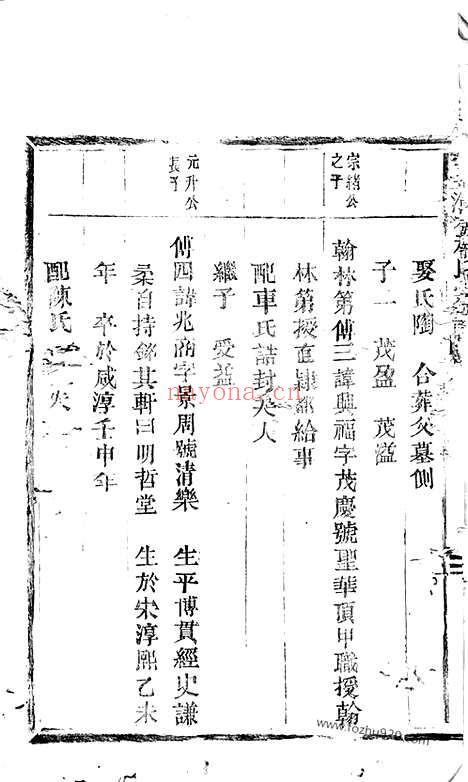 娶氏陶 合葬父墓側
子一 茂盈 茂溢
宗緒公之子
翰林第傅三諱興福字茂慶號聖華頂甲職授翰
林第授直隸都給事
配車氏誥封夫人
繼子 愛益
元升公長子
傅四諱兆商字景周號清樂 生平博貫經史謙
柔自持銘其軒曰明哲堂 生於宋淳熙乙未
年 卒於咸淳壬申年
配陳氏 失
nayona.cn
www.fozhu920.com